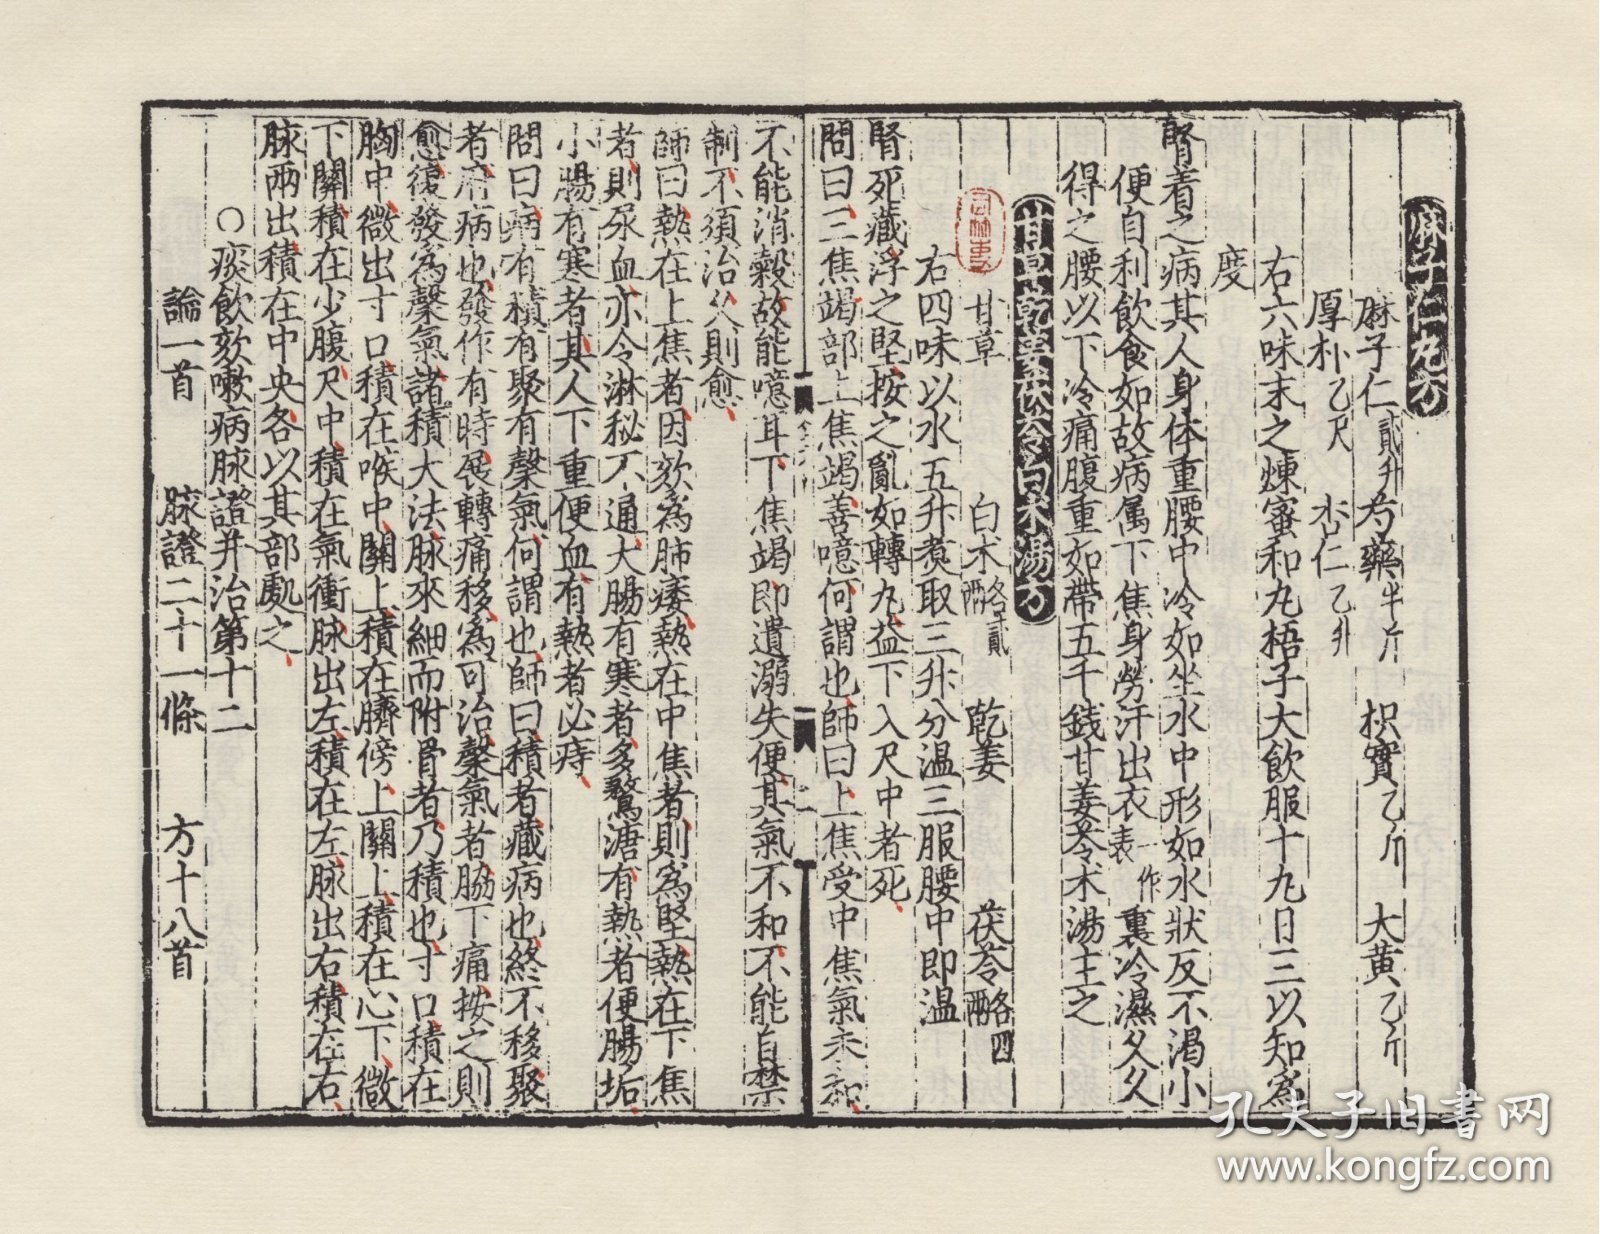 麻子仁丸方
麻子仁貳升 芍藥半斤 枳實乙斤 大黄乙斤
厚朴乙尺 杏仁乙升
右六味末之煉蜜和丸梧子大飲服十丸日三以知爲
度
腎着之病其人身体重腰中冷如坐水中形如水狀反不渴小
便自利飲食如故病属下焦身勞汗出衣表一作裏冷濕久久
得之腰以下冷痛腹重如帶五千錢甘姜苓术湯主之
甘草乾姜茯苓白术湯方
甘草 白术各貳兩 乾姜 茯苓各四兩
右四味以水五升煮取三升分温三服腰中即温
腎死藏浮之堅按之亂如轉丸益下入尺中者死
問曰三焦竭部上焦竭善噫何謂也師曰上焦受中焦氣未和
不能消穀故能噫耳下焦竭即遺溺失便其氣不和不能自禁
制不須治久則愈
師曰熱在上焦者因欬爲肺痿熱在中焦者則爲堅熱在下焦
者則尿血亦令淋秘不通大腸有寒者多鶩溏有熱者便腸垢
小腸有寒者其人下重便血有熱者必痔
問曰病有積有聚有䅽氣何謂也師曰積者藏病也終不移聚
者府病也發作有時展轉痛移爲可治䅽氣者脇下痛按之則
愈復發爲䅽氣諸積大法脉來細而附骨者乃積也寸口積在
胸中微出寸口積在喉中關上積在臍傍上關上積在心下微
下關積在少腹尺中積在氣衝脉出左積在左脉出右積在右
脉兩出積在中央各以其部處之
○痰飲欬嗽病脉證并治第十二
論一首 脉證二十一條 方十八首
孔夫子旧书网
www.kongfz.com